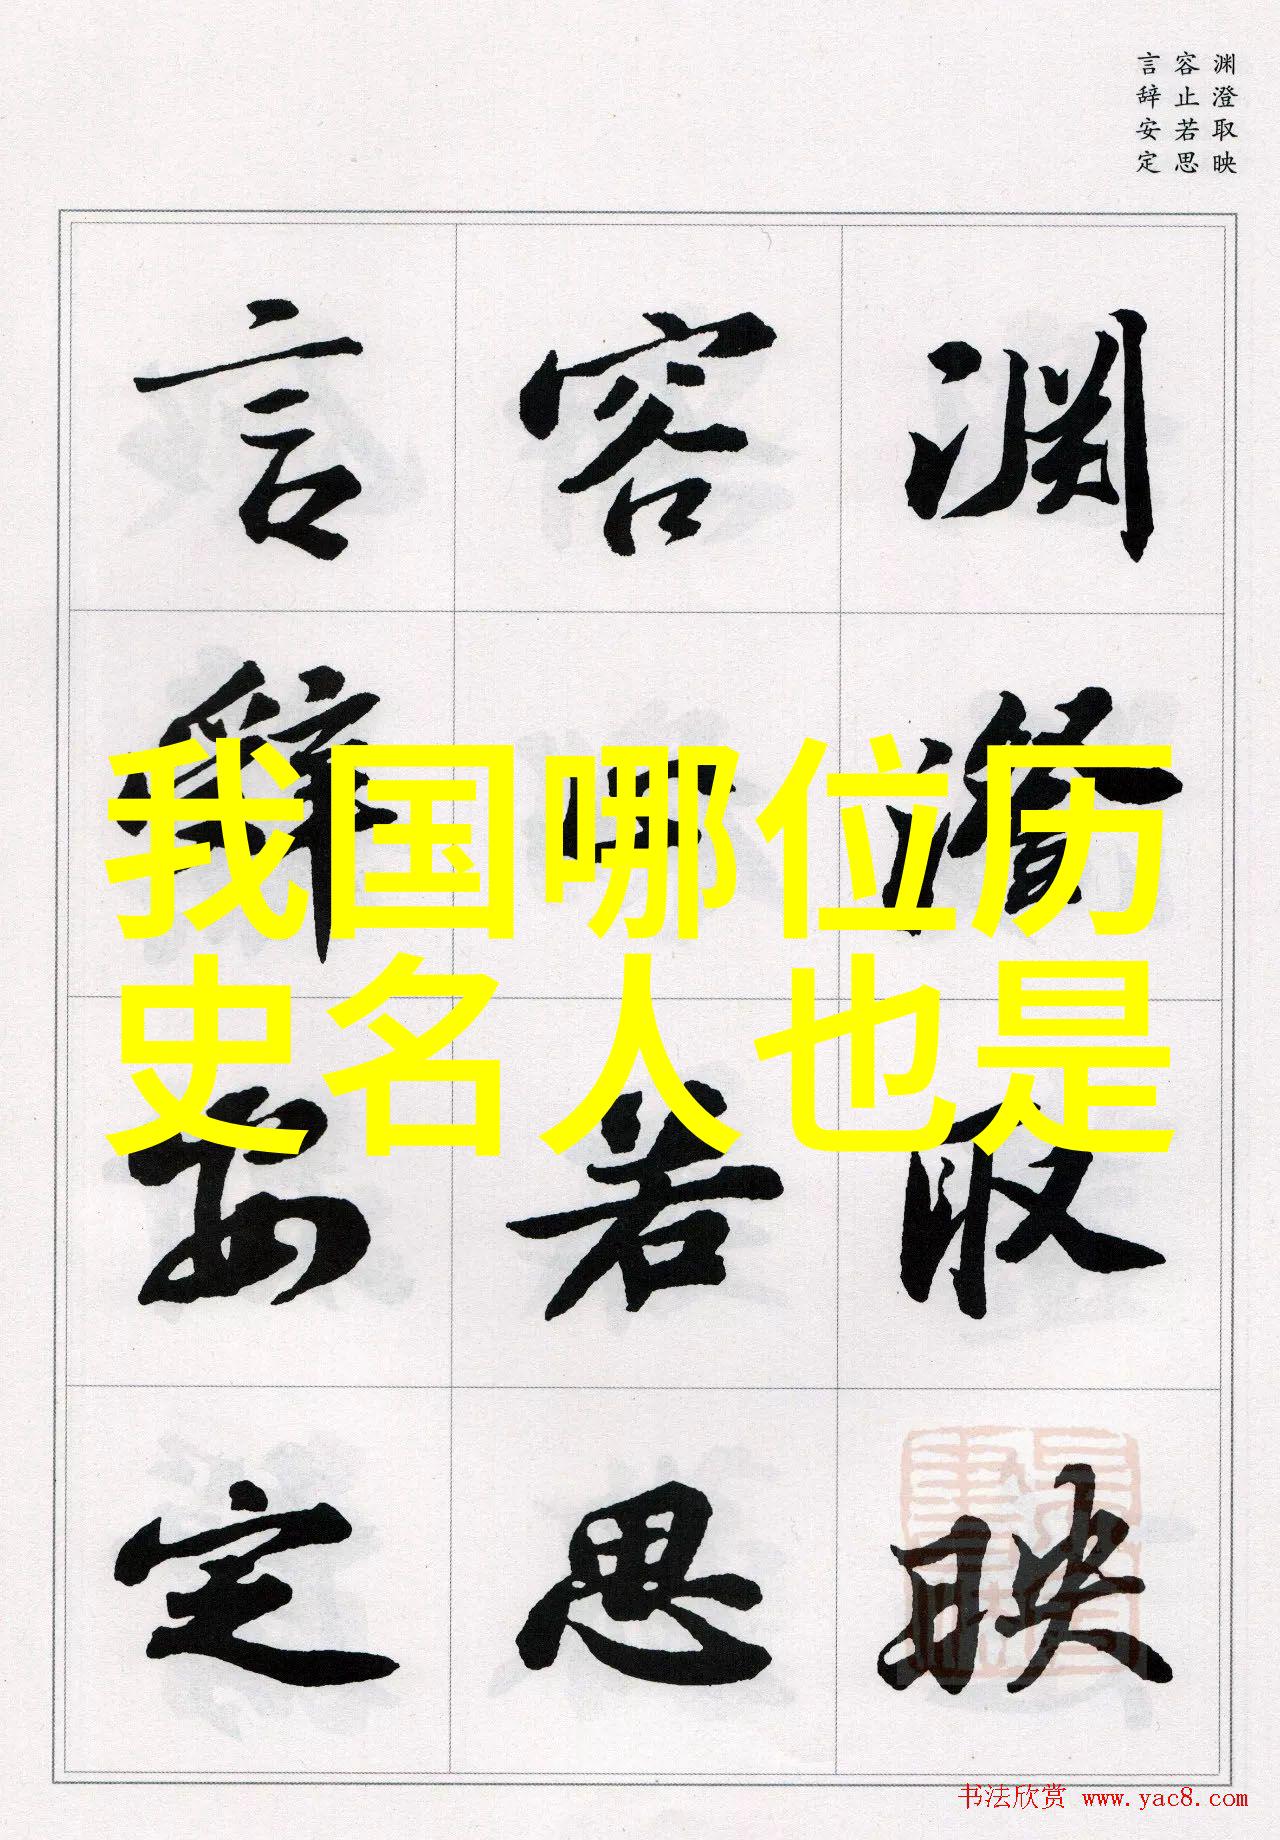 渊澄取映
容止若思
言辞安定
渊澄取映
容止若思
言辞安定
我国哪位历
史名人也是
书法欣赏 www.yac8.com